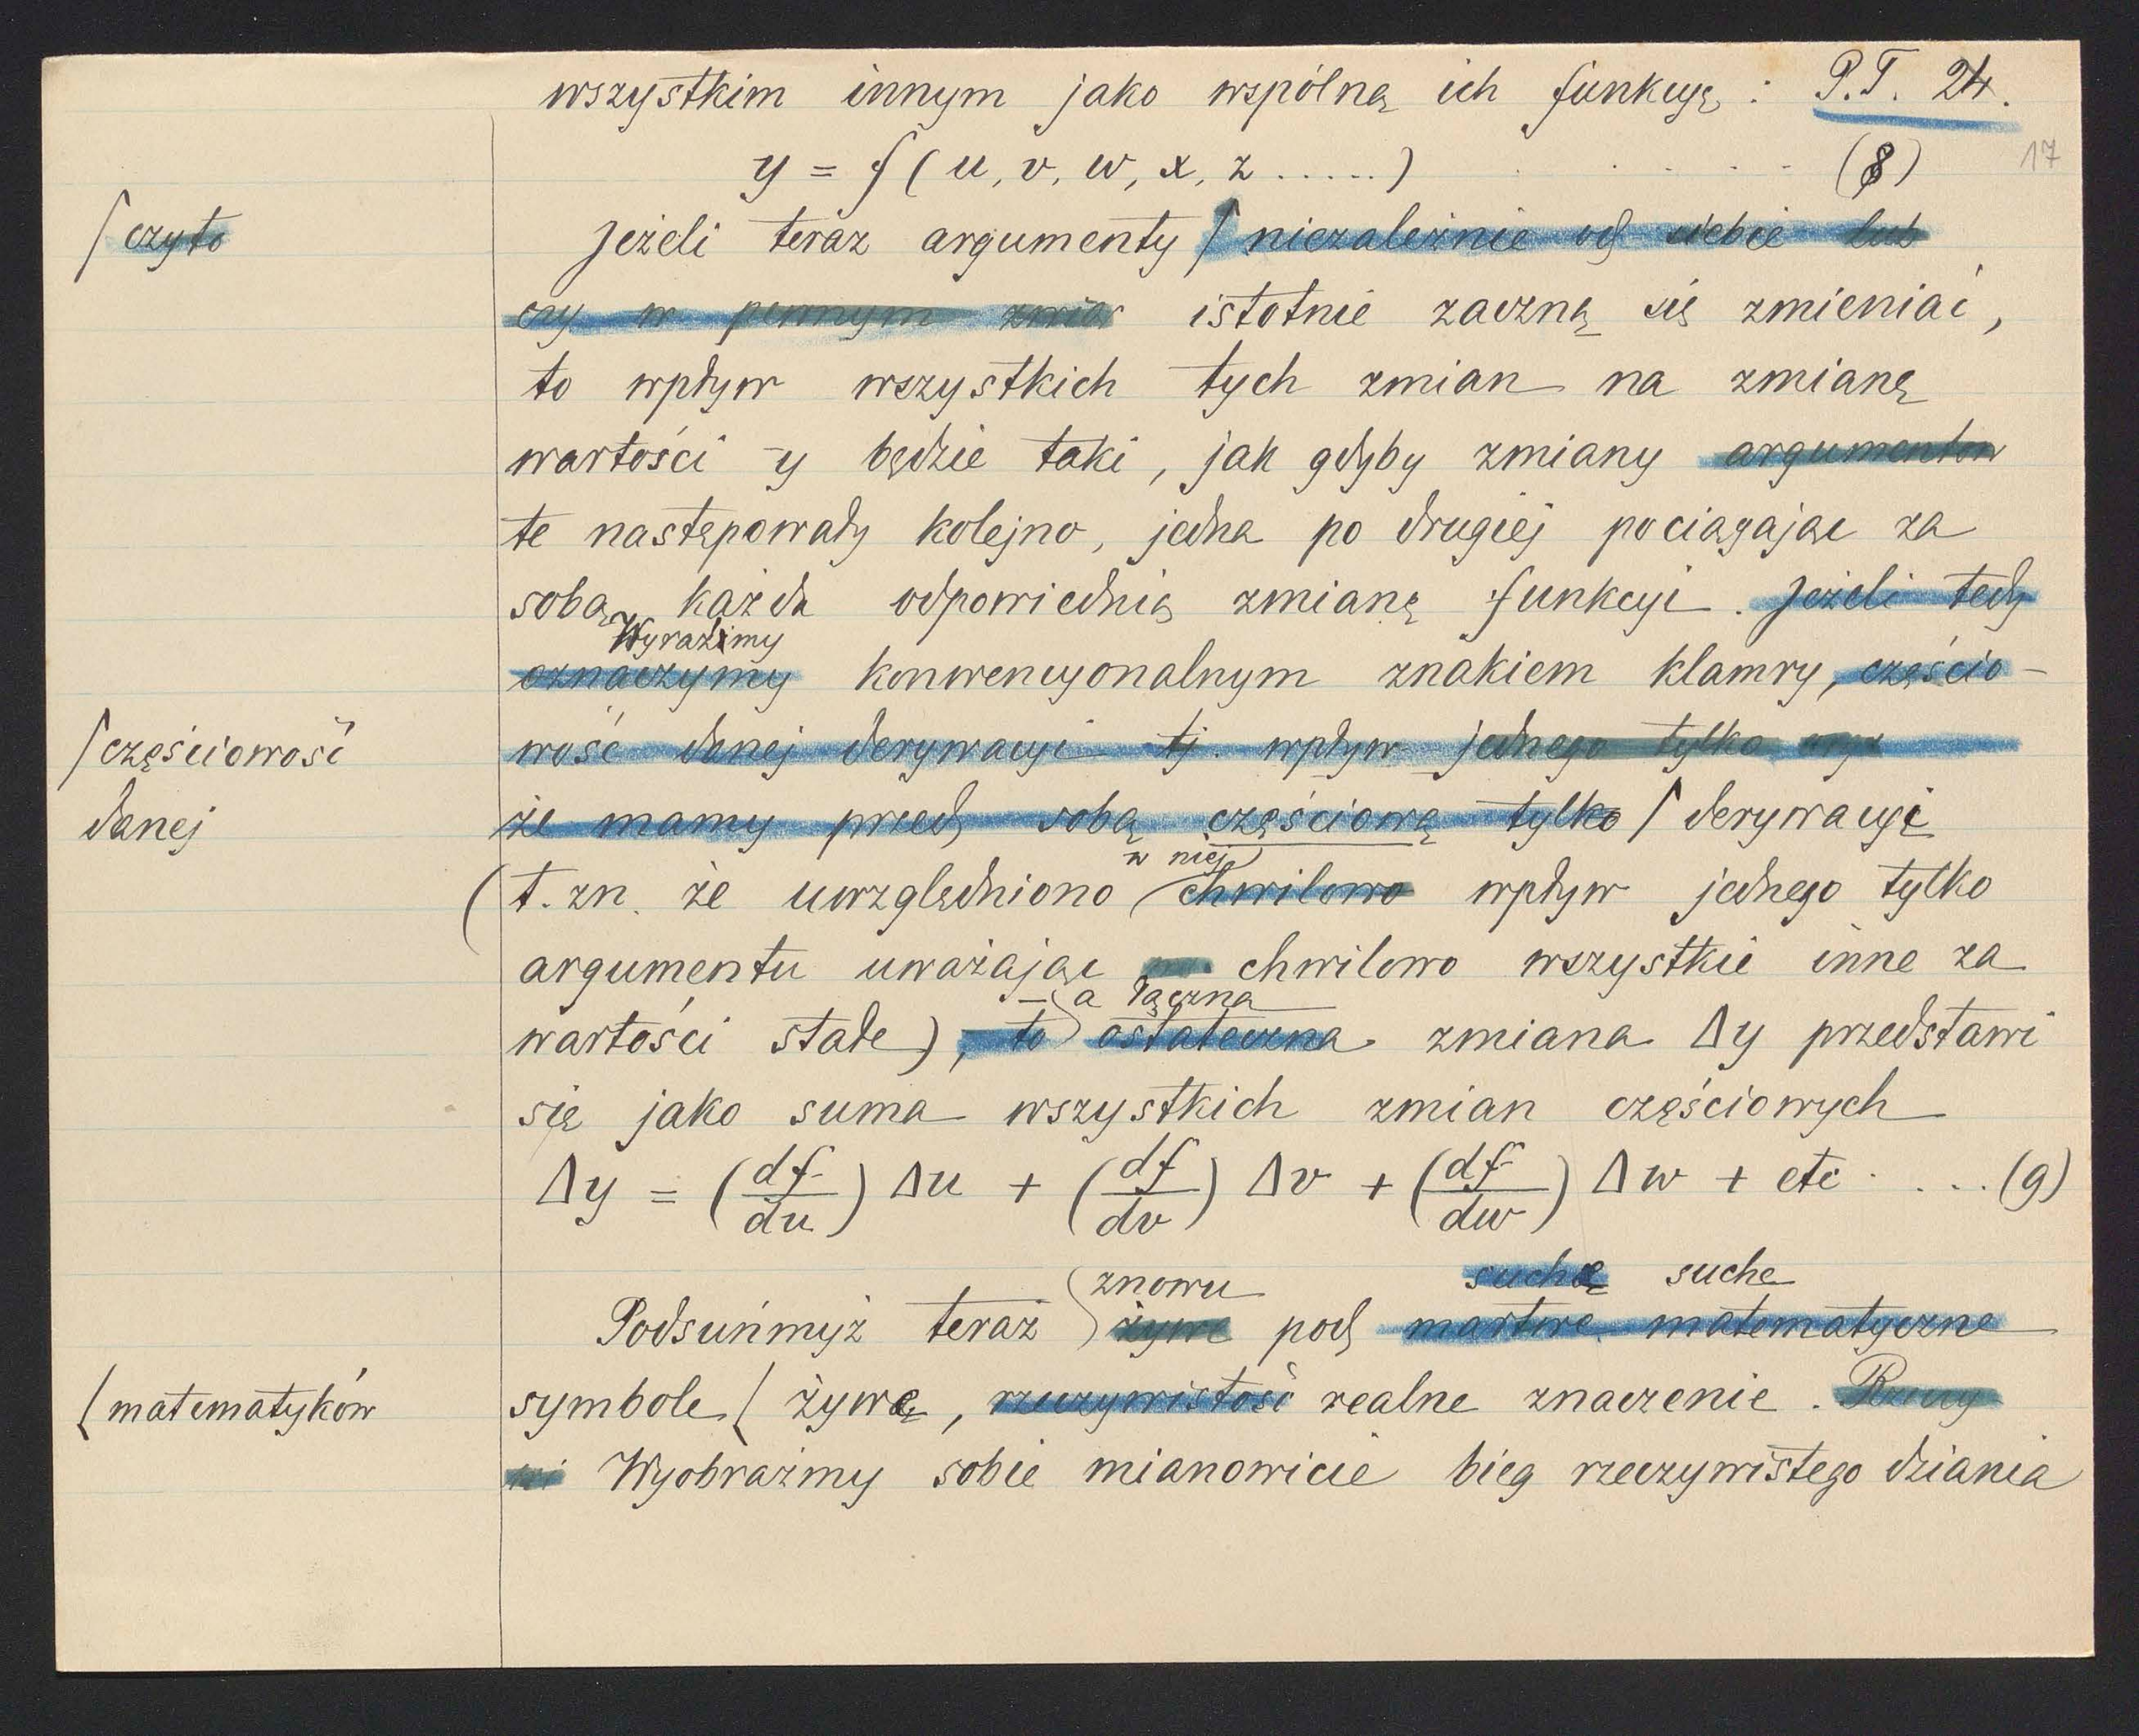 wszystkim innym jako wspólną ich funkcyę : P.T. 24.
17
y = f ( u, v, w, x, z ..... ) . . . . . (8)
/ czyto
Jeżeli teraz argumenty / niezależnie od siebie lub
czy w pewnym zwią istotnie zaczną się zmieniać,
to wpływ wszystkich tych zmian na zmianę
wartości y będzie taki, jak gdyby zmiany argumentów
te następowały kolejno, jedna po drugiej pociągając za
sobą każda odpowiednią zmianę funkcyi. Jeżeli tedy
Wyraźimy
oznaczymy konwencyonalnym znakiem klamry, częścio-
/ częściowość
wość danej derywacyi tj. wpływ jednego tylko
danej
że mamy przed sobą częściową tylko / derywacyę
w niej
( t. zn. że uwzględniono chwilowo wpływ jednego tylko
argumentu uważając chwilowo wszystkie inne za
– a łączna
wartości stałe), to ostateczna zmiana Δy przedstawi
się jako suma wszystkich zmian częściowych
Δy = (df/du) Δu + (df/dv) Δv + (df/dw) Δw + etc . . . . (9)
znowu suchą suche
Podsuńmyż teraz żywe pod martwe matematyczne
( matematyków
symbole ( żywe, rzeczywistość realne znaczenie. Rzecz
Wyobraźmy sobie mianowicie bieg rzeczywistego działania